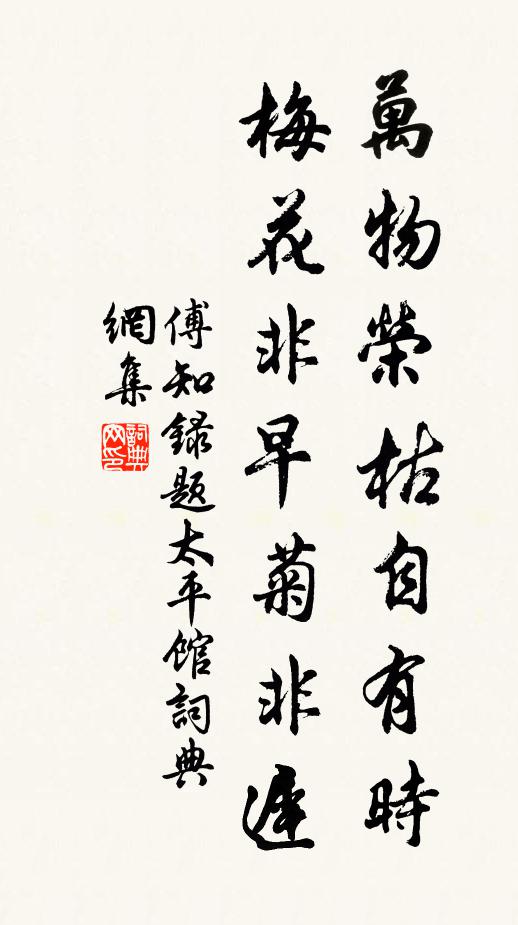 萬物榮枯自有時
梅花非早菊非遲
傅知錄題太平館詞典
網集
詞典網印